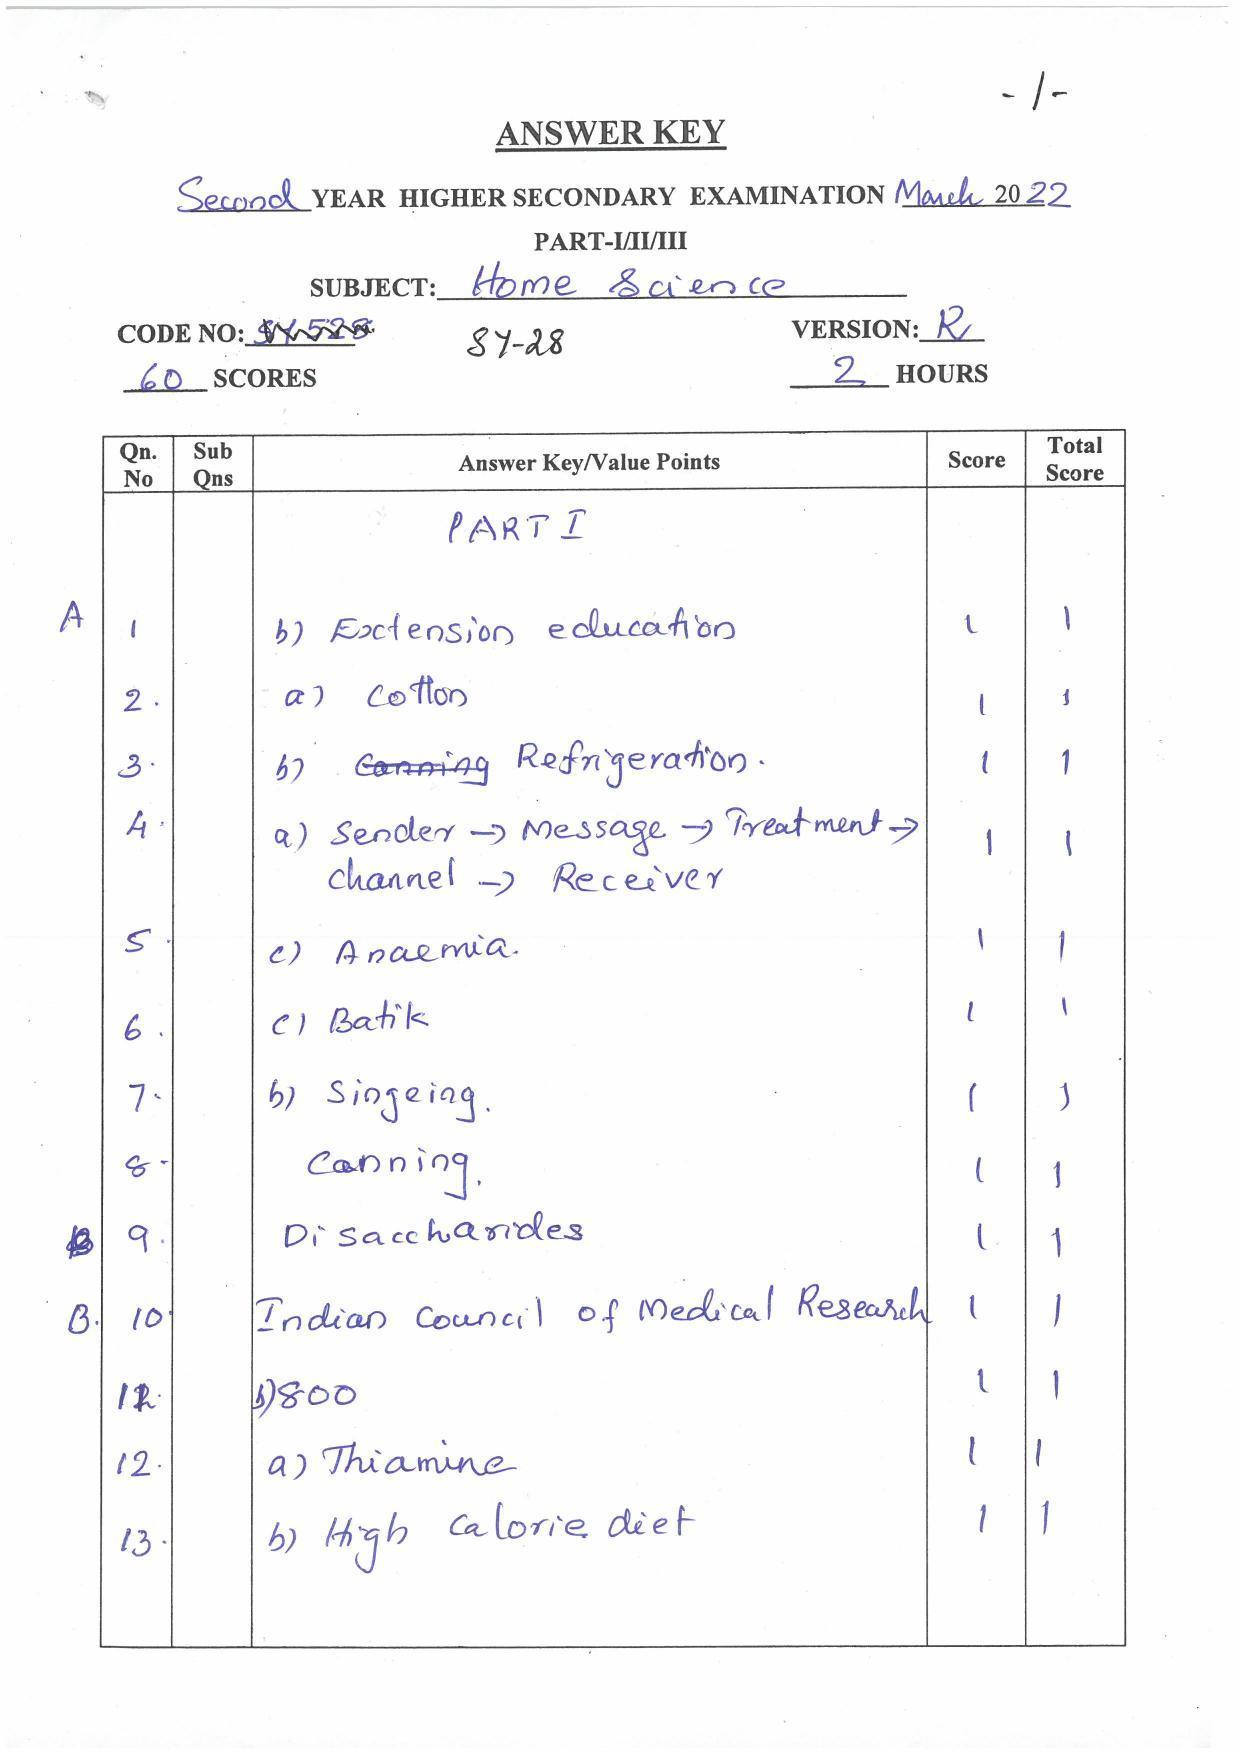 -1-
ANSWER KEY
Second YEAR HIGHER SECONDARY EXAMINATION March 2022
PART-I/II/III
SUBJECT: Home Science
CODE NO: SY-528 SY-28 VERSION: R
60 SCORES 2 HOURS
Qn. No Sub Qns Answer Key/Value Points Score Total Score
PART I
A 1 b) Extension education 1 1
2. a) Cotton 1 1
3. b) Canning Refrigeration. 1 1
4. a) Sender → Message → Treatment →
channel → Receiver 1 1
5. c) Anaemia. 1 1
6. c) Batik 1 1
7. b) Singeing. 1 1
8. Canning. 1 1
9. Disaccharides 1 1
B. 10. Indian Council of Medical Research 1 1
11. b) 800 1 1
12. a) Thiamine 1 1
13. b) High Calorie diet 1 1